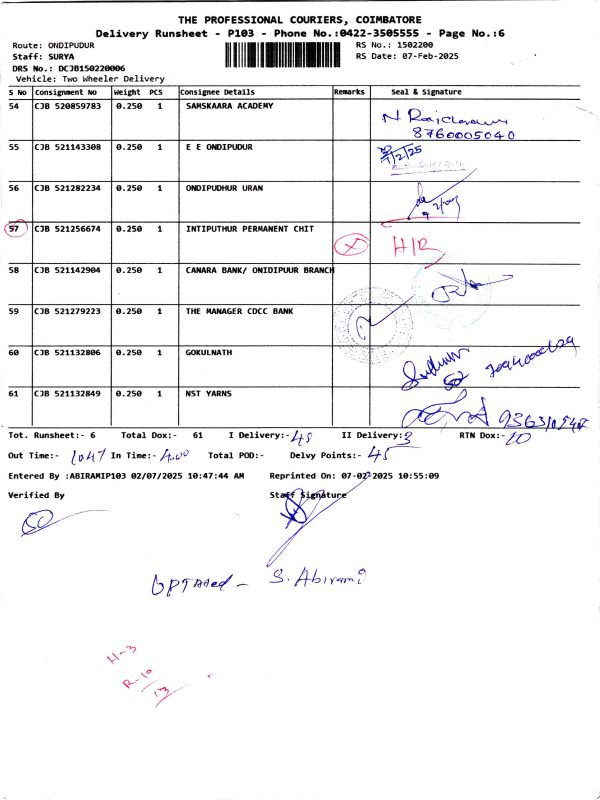 THE PROFESSIONAL COURIERS, COIMBATORE
Delivery Runsheet - P103 - Phone No.:0422-3505555 - Page No.:6
Route: ONDIPUDUR RS No.: 1502200
Staff: SURYA RS Date: 07-Feb-2025
DRS No.: DCJB150220006
Vehicle: Two Wheeler Delivery
S No Consignment No Weight PCS Consignee Details Remarks Seal & Signature
54 CJB 520859783 0.250 1 SAMSKAARA ACADEMY
8760005040
55 CJB 521143308 0.250 1 E E ONDIPUDUR
56 CJB 521282234 0.250 1 ONDIPUDHUR URAN
57 CJB 521256674 0.250 1 INTIPUTHUR PERMANENT CHIT X H/R
58 CJB 521142904 0.250 1 CANARA BANK/ ONIDIPUUR BRANCH
59 CJB 521279223 0.250 1 THE MANAGER CDCC BANK
60 CJB 521132806 0.250 1 GOKULNATH
61 CJB 521132849 0.250 1 NST YARNS
Tot. Runsheet:- 6 Total Dox:- 61 I Delivery:- 48 II Delivery: 3 RTN Dox:- 10
Out Time:- 10.47 In Time:- 4.00 Total POD:- Delvy Points:- 45
Entered By :ABIRAMIP103 02/07/2025 10:47:44 AM Reprinted On: 07-02-2025 10:55:09
Verified By Staff Signature
S. Abirami
H-3
R-10
13